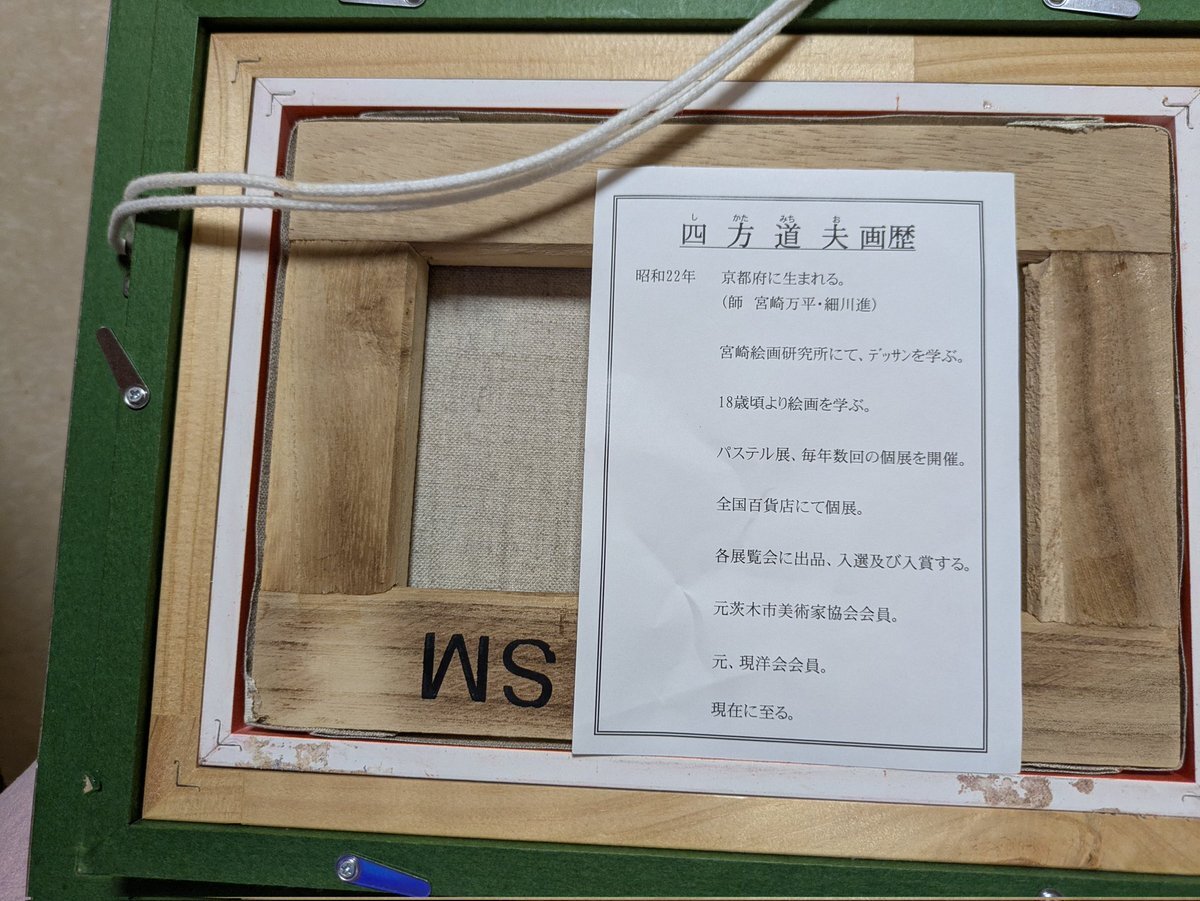 し かた みち お
四方道夫画歴
昭和22年 京都府に生まれる。
(師 宮崎万平・細川進)
宮崎絵画研究所にて、デッサンを学ぶ。
18歳頃より絵画を学ぶ。
パステル展、毎年数回の個展を開催。
全国百貨店にて個展。
各展覧会に出品、入選及び入賞する。
元茨木市美術家協会会員。
元、現洋会会員。
現在に至る。
SM